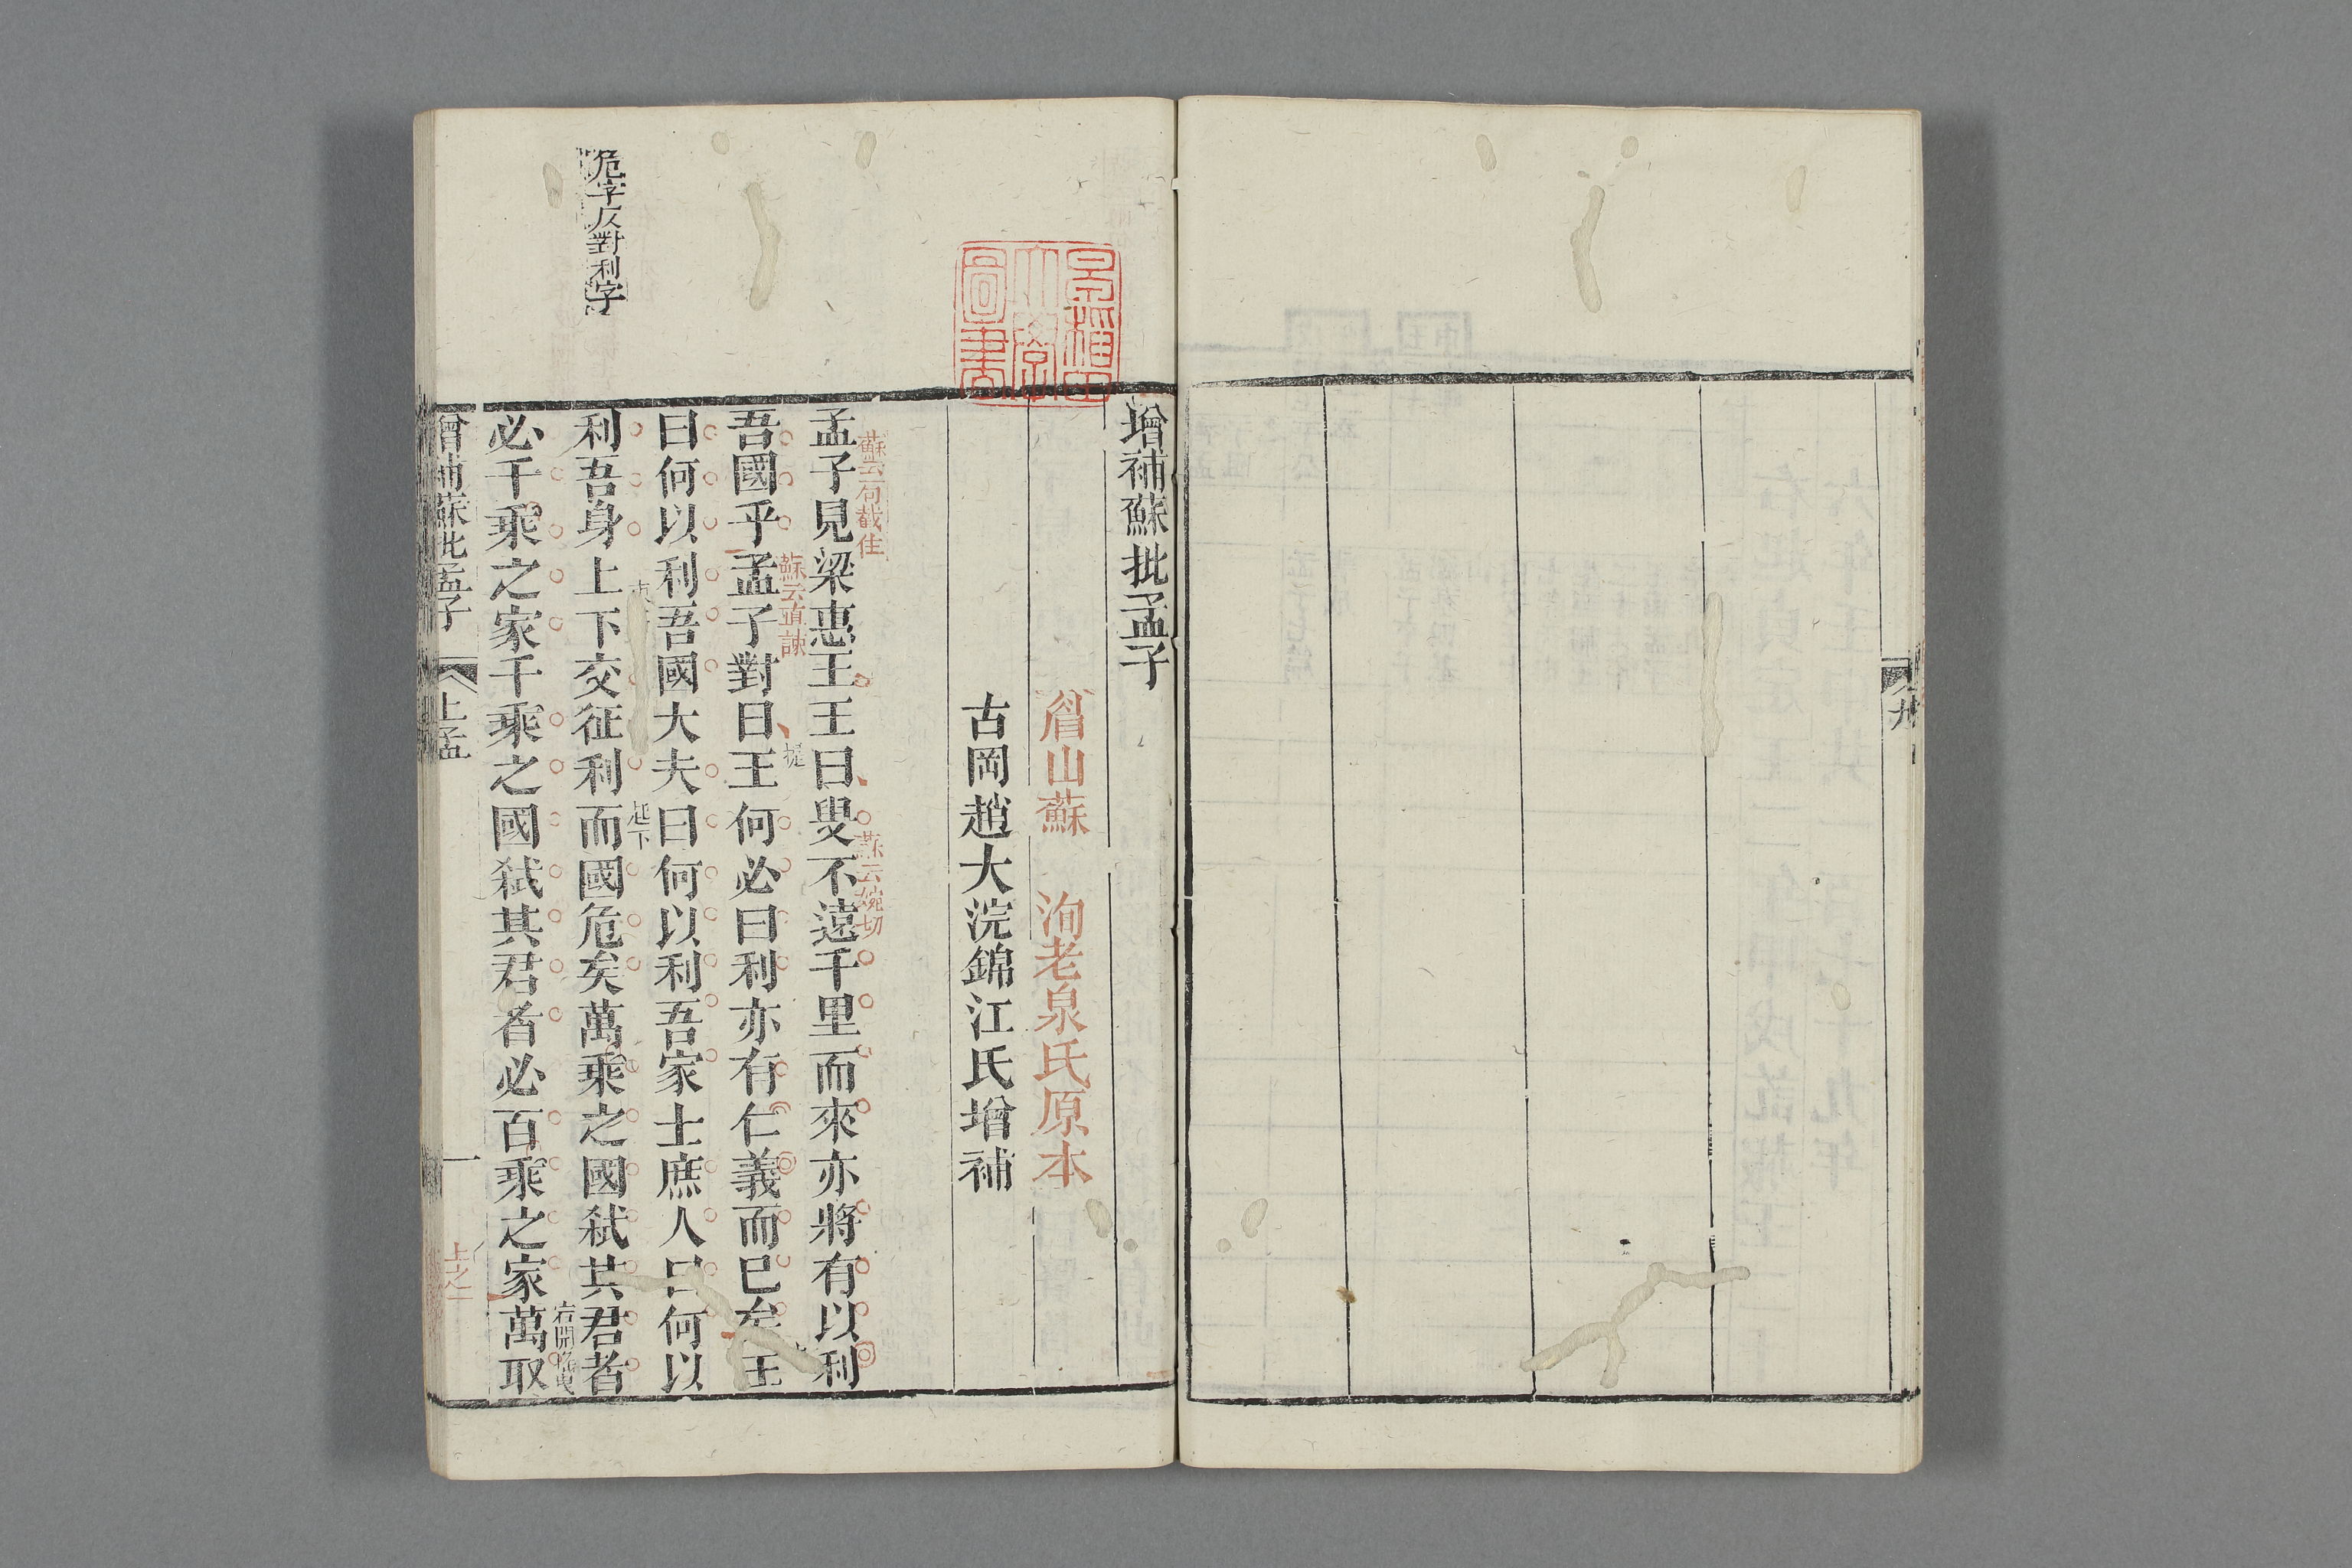 九
增補蘇批孟子
眉山蘇 洵老泉氏原本
古岡趙大浣錦江氏增補
蘇云句截住
蘇云婉切
孟子見梁惠王王曰叟不遠千里而來亦將有以利
蘇云直諫
提
吾國乎孟子對曰王何必曰利亦有仁義而已矣王
曰何以利吾國大夫曰何以利吾家士庶人曰何以
起下
利吾身上下交征利而國危矣萬乘之國弒其君者
必千乘之家千乘之國弒其君者必百乘之家萬取
危字反對利字
增補蘇批孟子 上孟 一
上之一